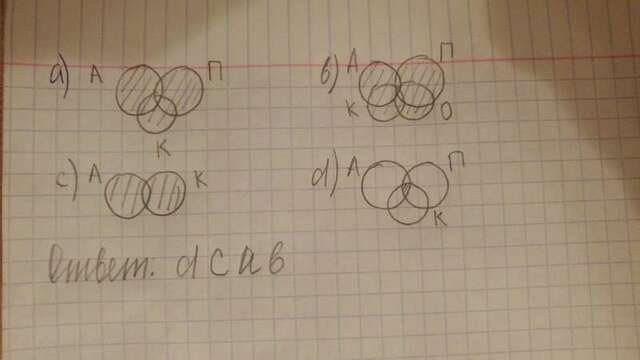 а) А П К
в) А П К О
с) А К
d) А П К
Ответ: d c a в